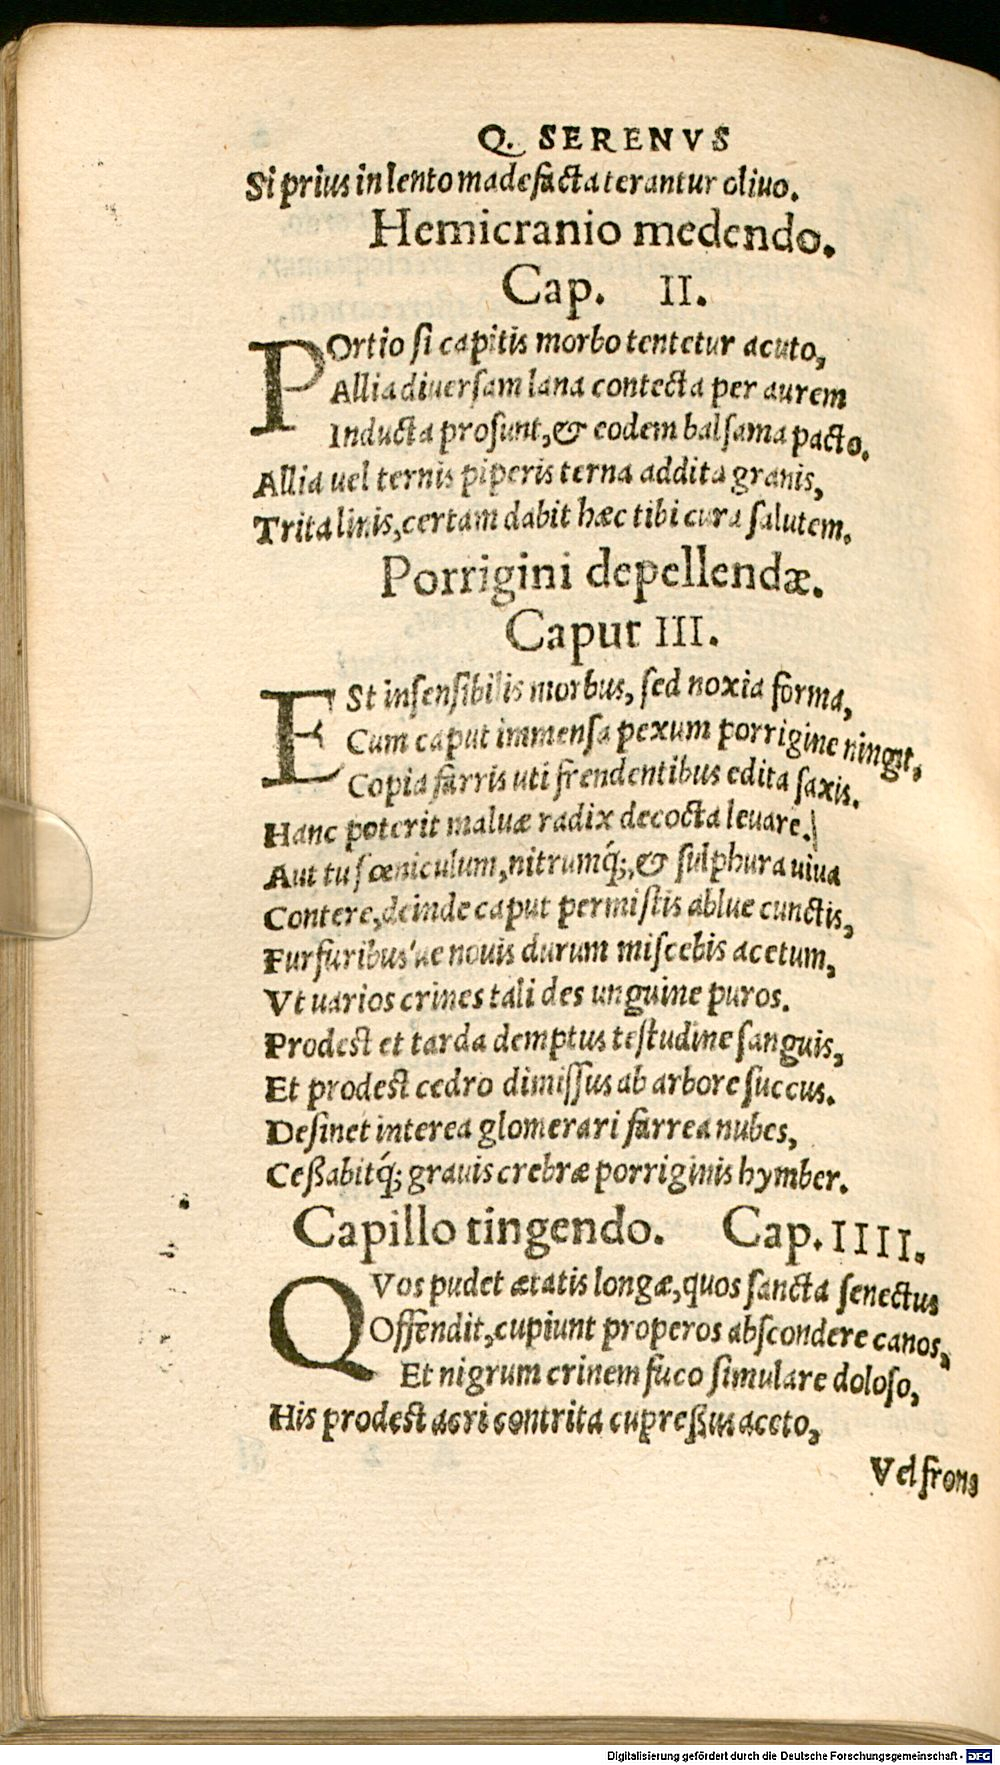 Q. SERENVS
Si prius in lento madefacta terantur oliuo.
Hemicranio medendo.
Cap. II.
POrtio ſi capitis morbo tentetur acuto,
Allia diuerſam lana contecta per aurem
Inducta proſunt, & eodem balſama pacto.
Allia uel ternis piperis terna addita granis,
Trita linis, certam dabit hæc tibi cura ſalutem.
Porrigini depellendæ.
Caput III.
ESt inſenſibilis morbus, ſed noxia forma,
Cum caput immenſa pexum porrigine ningit,
Copia farris uti frendentibus edita ſaxis.
Hanc poterit maluæ radix decocta leuare.
Aut tu fœniculum, nitrumq́;, & ſulphura uiua
Contere, deinde caput permiſtis ablue cunctis,
Furfuribus'ue nouis durum miſcebis acetum,
Vt uarios crines tali des unguine puros.
Prodest et tarda demptus teſtudine ſanguis,
Et prodest cedro dimiſſus ab arbore ſuccus.
Deſinet interea glomerari farrea nubes,
Ceßabitq́; grauis crebræ porriginis hymber.
Capillo tingendo. Cap. IIII.
QVos pudet ætatis longæ, quos ſancta ſenectus
Offendit, cupiunt properos abſcondere canos,
Et nigrum crinem fuco ſimulare doloſo,
His prodest acri contrita cupreßus aceto,
Vel frons
Digitalisierung gefördert durch die Deutsche Forschungsgemeinschaft - DFG